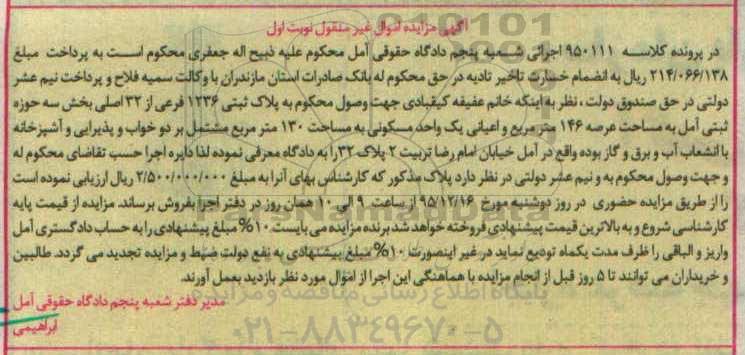 آگهی مزایده اموال غیر منقول نوبت اول
در پرونده کلاسه ۹۵۰۱۱۱ اجرائی شعبه پنجم دادگاه حقوقی آمل محکوم علیه ذبیح اله جعفری محکوم است به پرداخت مبلغ
۲۱۴/۰۶۶/۱۳۸ ریال به انضمام خسارت تاخیر تادیه در حق محکوم له بانک صادرات استان مازندران با وکالت سمیه فلاح و پرداخت نیم عشر
دولتی در حق صندوق دولت ، نظر به اینکه خانم عفیفه کیقبادی جهت وصول محکوم به پلاک ثبتی ۱۲۳۶ فرعی از ۳۲ اصلی بخش سه حوزه
ثبتی آمل به مساحت عرصه ۱۴۶ متر مربع و اعیانی یک واحد مسکونی به مساحت ۱۳۰ متر مربع مشتمل بر دو خواب و پذیرایی و آشپزخانه
با انشعاب آب و برق و گاز بوده واقع در آمل خیابان امام رضا تربیت ۲ پلاک ۳۲ را به دادگاه معرفی نموده لذا دایره اجرا حسب تقاضای محکوم له
و جهت وصول محکوم به و نیم عشر دولتی در نظر دارد پلاک مذکور که کارشناس بهای آنرا به مبلغ ۲/۵۰۰/۰۰۰/۰۰۰ ریال ارزیابی نموده است
را از طریق مزایده حضوری در روز دوشنبه مورخ ۹۵/۱۲/۱۶ از ساعت ۹ الی ۱۰ همان روز در دفتر اجرا بفروش برساند. مزایده از قیمت پایه
کارشناسی شروع و به بالاترین قیمت پیشنهادی فروخته خواهد شد برنده مزایده می بایست ۱۰% مبلغ پیشنهادی را به حساب دادگستری آمل
واریز و الباقی را ظرف مدت یکماه تودیع نماید در غیر اینصورت ۱۰% مبلغ پیشنهادی به نفع دولت ضبط و مزایده تجدید می گردد. طالبین
و خریداران می توانند تا ۵ روز قبل از انجام مزایده با هماهنگی این اجرا از اموال مورد نظر بازدید بعمل آورند.
مدیر دفتر شعبه پنجم دادگاه حقوقی آمل
ابراهیمی
ParsNamadData
پایگاه اطلاع رسانی مناقصه و مزایده
۰۲۱-۸۸۳۴۹۶۷۰-۵